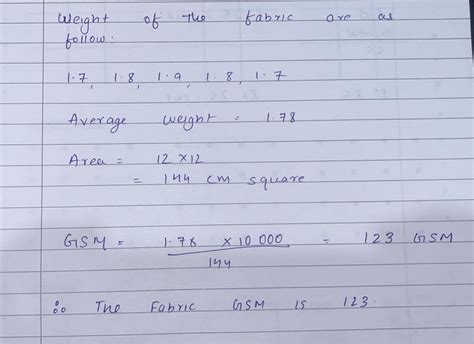 Weight of the fabric are as
follow:
1.7, 1.8, 1.9, 1.8, 1.7
Average weight = 1.78
Area = 12 x 12
= 144 cm square
GSM = 1.78 x 10 000 / 144 = 123 GSM
∴ The Fabric GSM is 123.